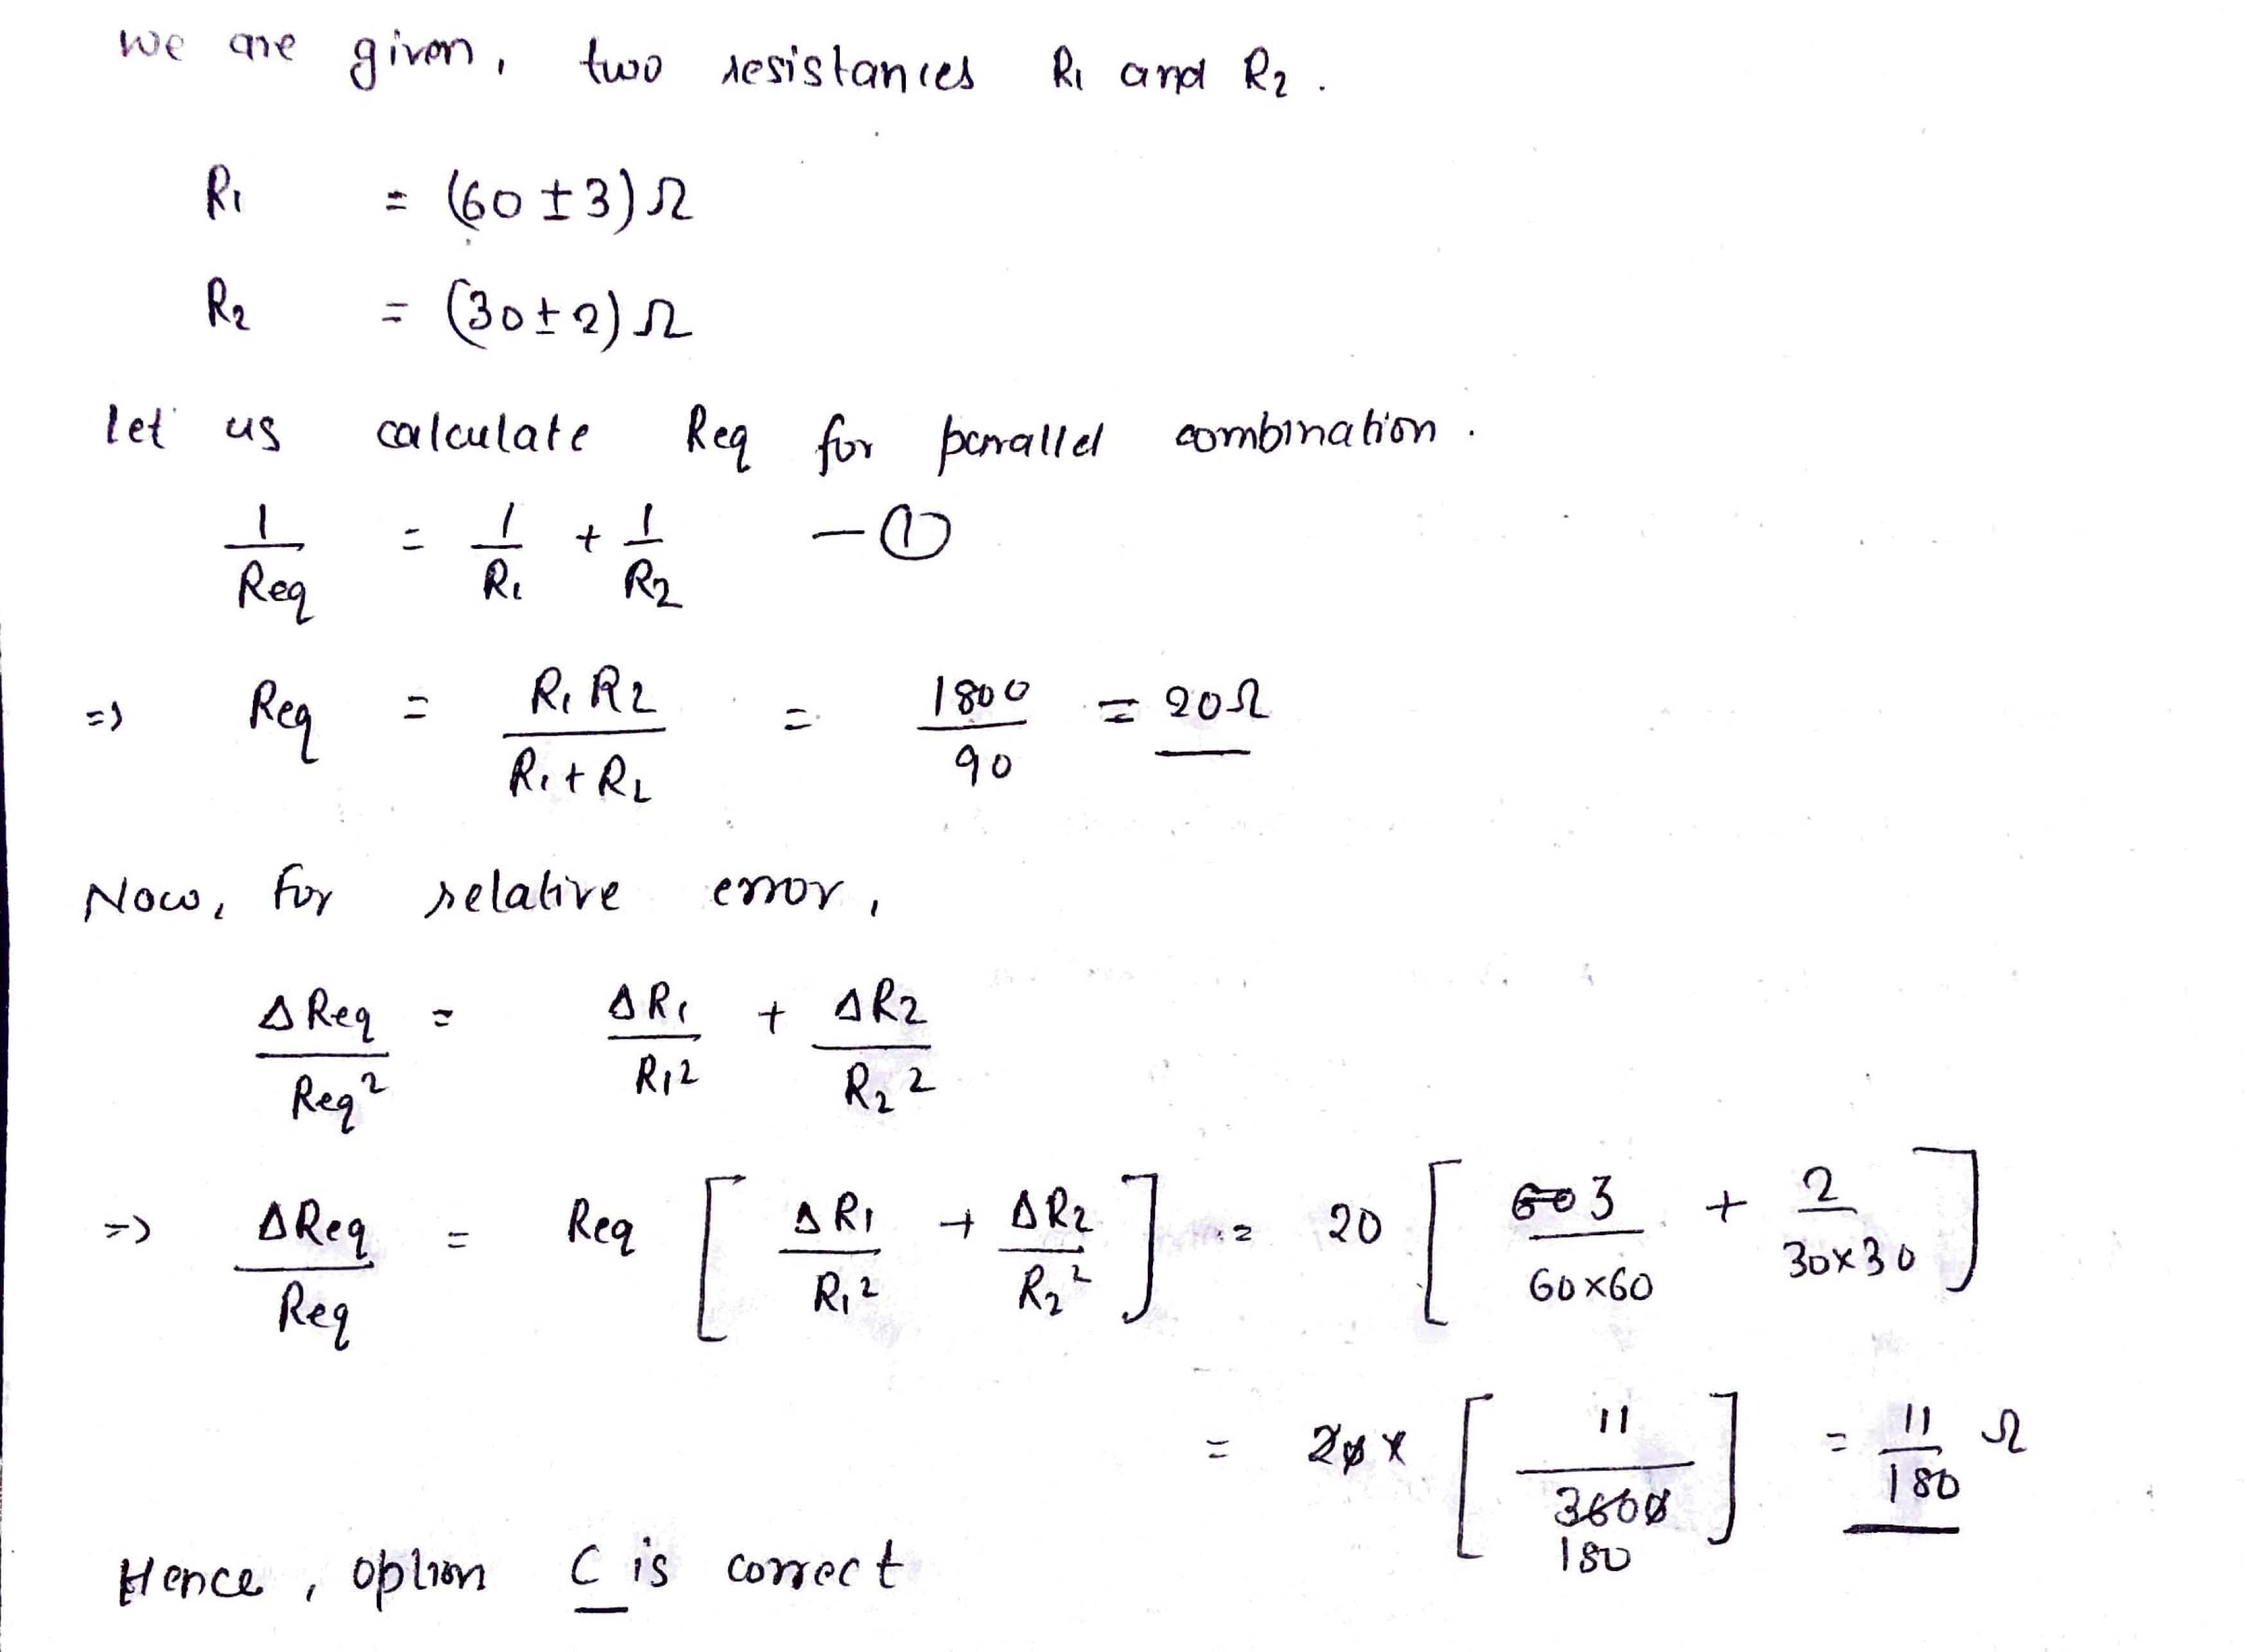 we are given, two resistances R1 and R2.
R1 = (60 ± 3) Ω
R2 = (30 ± 2) Ω
let us calculate Req for parallel combination.
1/Req = 1/R1 + 1/R2 — ①
=> Req = R1 R2 / R1 + R2 = 1800 / 90 = 20 Ω
Now, for relative error,
ΔReq / Req² = ΔR1 / R1² + ΔR2 / R2²
=> ΔReq / Req = Req [ ΔR1 / R1² + ΔR2 / R2² ] = 20 [ 3 / 60×60 + 2 / 30×30 ]
= 20 × [ 11 / 3600 ] = 11 / 180 Ω
180
Hence, option C is correct